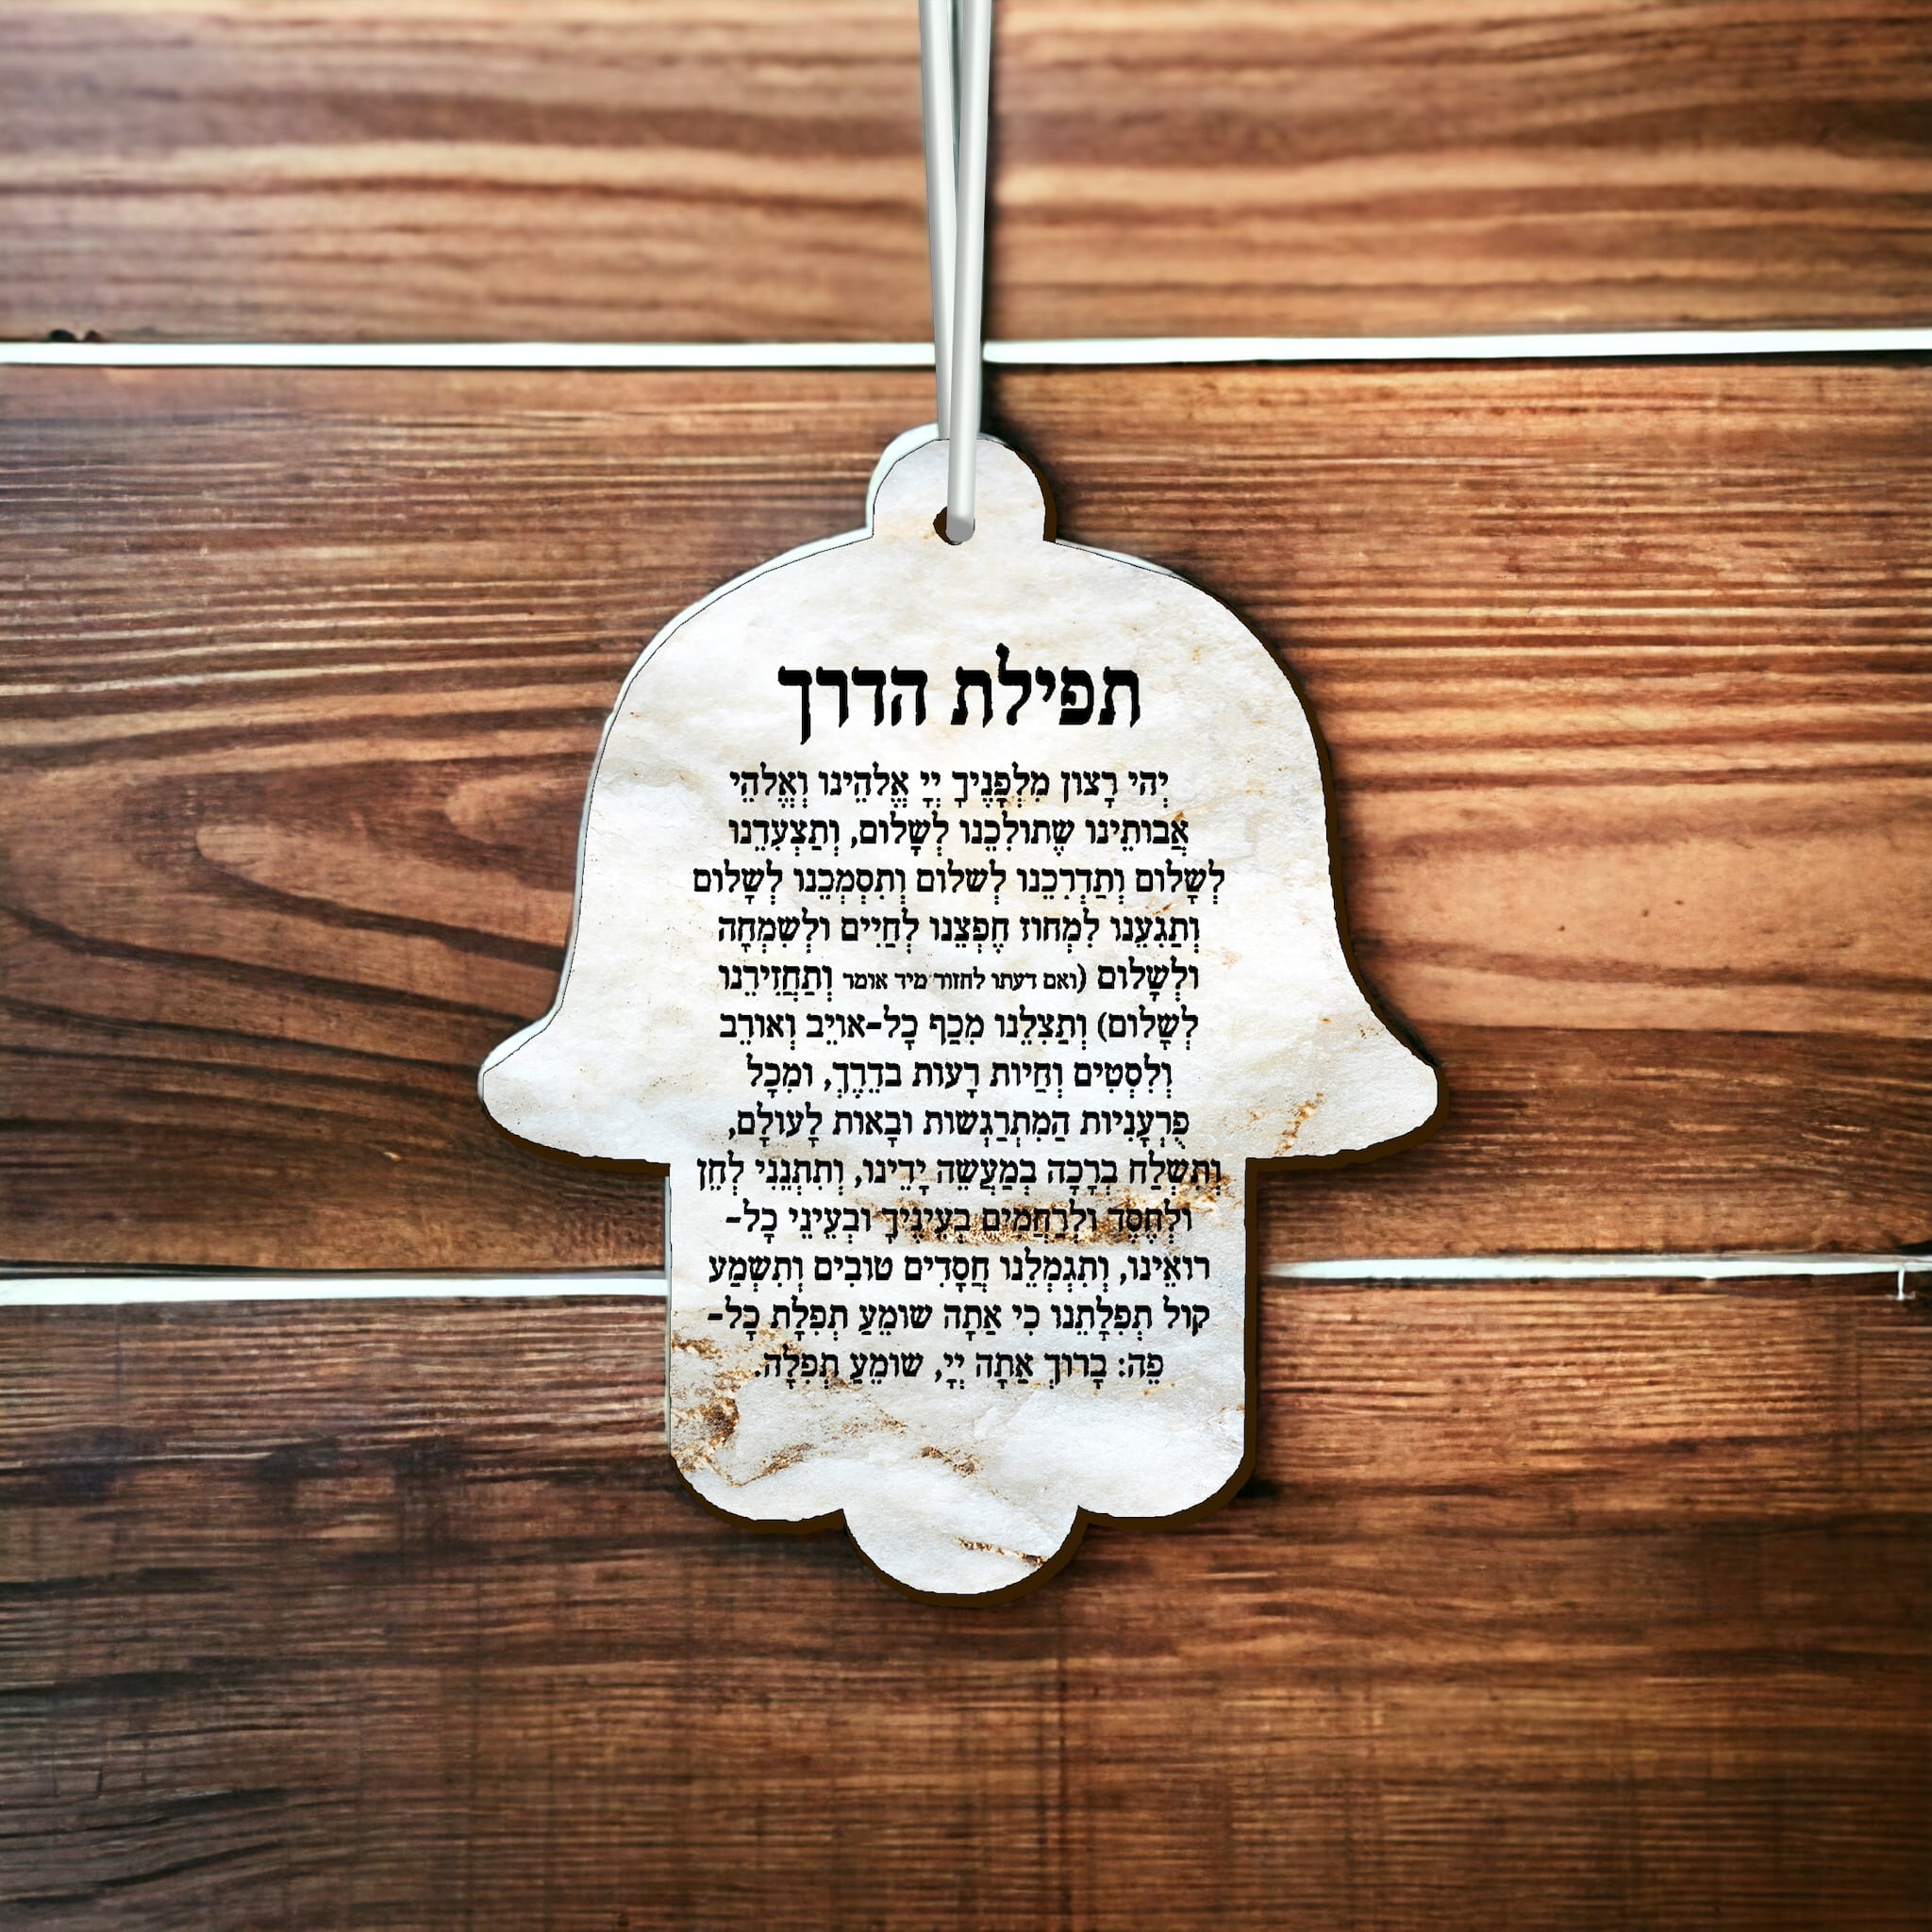 תפילת הדרך
יְהִי רָצוֹן מִלְפָנֶיךָ יְיָ אֱלֹהֵינוּ וְאֱלֹהֵי
אֲבוֹתֵינוּ שֶתּוֹלִכֵנוּ לְשָלוֹם, וְתַצְעִדֵנוּ
לְשָלוֹם וְתַדְרִכֵנוּ לְשלוֹם וְתִסְמְכֵנוּ לְשָלוֹם
וְתַגִעֵנוּ לִמְחוֹז חֶפְצֵנוּ לְחַיִים וּלְשִמְחָה
וּלְשָלוֹם (ואם דעתו לחזור מיד אומר וְתַחֲזִירֵנוּ
לְשָלוֹם) וְתַצִלֵנוּ מִכַף כָל-אוֹיֵב וְאוֹרֵב
וְלִסְטִים וְחַיוֹת רָעוֹת בדֵרֶךְ, וּמִכָל
פֻּרְעָנִיוֹת הַמִתְרַגְשוֹת וּבָאוֹת לָעוֹלָם,
וְתִשְלַח בְרָכָה בְמַעֲשֵה יָדֵינוּ, וְתִתְנֵנִי לְחֵן
וּלְחֶסֶד וּלְרַחֲמִים בְעֵינֶיךָ וּבְעֵינֵי כָל-
רוֹאֵינוּ, וְתִגְמְלֵנוּ חֲסָדִים טוֹבִים וְתִשְמַע
קוֹל תְפִלָתֵנוּ כִי אַתָה שוֹמֵעַ תְפִלָת כָל-
פֵה: בָרוּךְ אַתָה יְיָ, שוֹמֵעַ תְפִלָה.